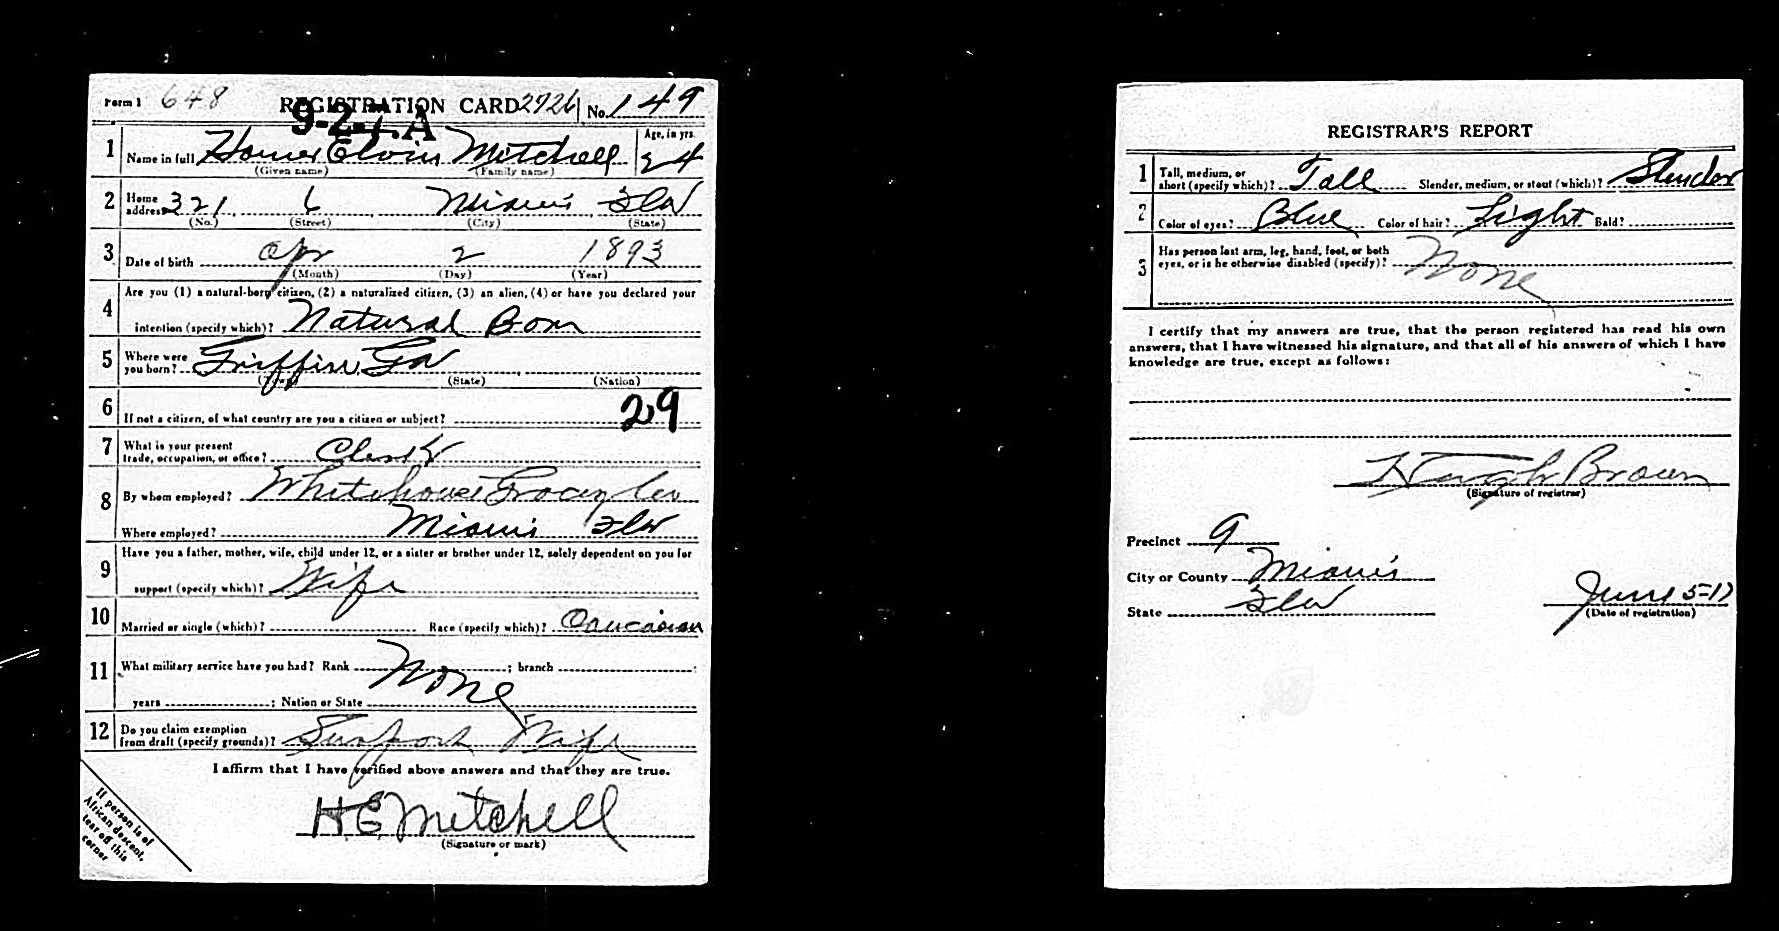 Form 1 648 REGISTRATION CARD 2726 No. 149
9-2-7.A
1 Name in full Homer Elvin Mitchell Age, in yrs. 24
(Given name) (Family name)
2 Home address 321 6 Miami Fla
(No.) (Street) (City) (State)
3 Date of birth Apr 2 1893
(Month) (Day) (Year)
4 Are you (1) a natural-born citizen, (2) a naturalized citizen, (3) an alien, (4) or have you declared your
intention (specify which)? Natural Born
5 Where were you born? Griffin Ga
(Town) (State) (Nation)
6 If not a citizen, of what country are you a citizen or subject?
29
7 What is your present trade, occupation, or office? Clerk
8 By whom employed? Whitehouse Grocery Co
Where employed? Miami Fla
9 Have you a father, mother, wife, child under 12, or a sister or brother under 12, solely dependent on you for
support (specify which)? Wife
10 Married or single (which)? Race (specify which)? Caucasian
11 What military service have you had? Rank None ; branch ;
years ; Nation or State
12 Do you claim exemption from draft (specify grounds)? Support Wife
I affirm that I have verified above answers and that they are true.
H E Mitchell
(Signature or mark)
If person is of
African descent,
tear off this
corner
REGISTRAR'S REPORT
1 Tall, medium, or short (specify which)? Tall Slender, medium, or stout (which)? Slender
2 Color of eyes? Blue Color of hair? Light Bald?
3 Has person lost arm, leg, hand, foot, or both
eyes, or is he otherwise disabled (specify)? None
I certify that my answers are true, that the person registered has read his own
answers, that I have witnessed his signature, and that all of his answers of which I have
knowledge are true, except as follows:
Hugh Brown
(Signature of registrar)
Precinct 9
City or County Miami
State Fla
June 5-17
(Date of registration)